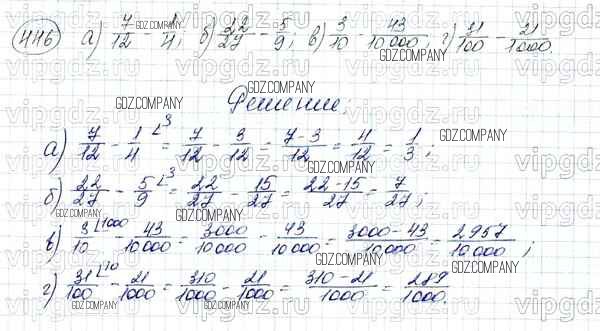 446 а) 7/12 - 1/4; б) 22/27 - 5/9; в) 3/10 - 43/10 000; г) 31/100 - 21/1000.
Решение:
а) 7/12 - 1/4 ∟3 = 7/12 - 3/12 = 7-3/12 = 4/12 = 1/3;
б) 22/27 - 5/9 ∟3 = 22/27 - 15/27 = 22-15/27 = 7/27;
в) 3/10 ∟1000 - 43/10 000 = 3000/10 000 - 43/10 000 = 3000-43/10 000 = 2957/10 000;
г) 31/100 ∟10 - 21/1000 = 310/1000 - 21/1000 = 310-21/1000 = 289/1000.
vipgdz.com
GDZ.COMPANY